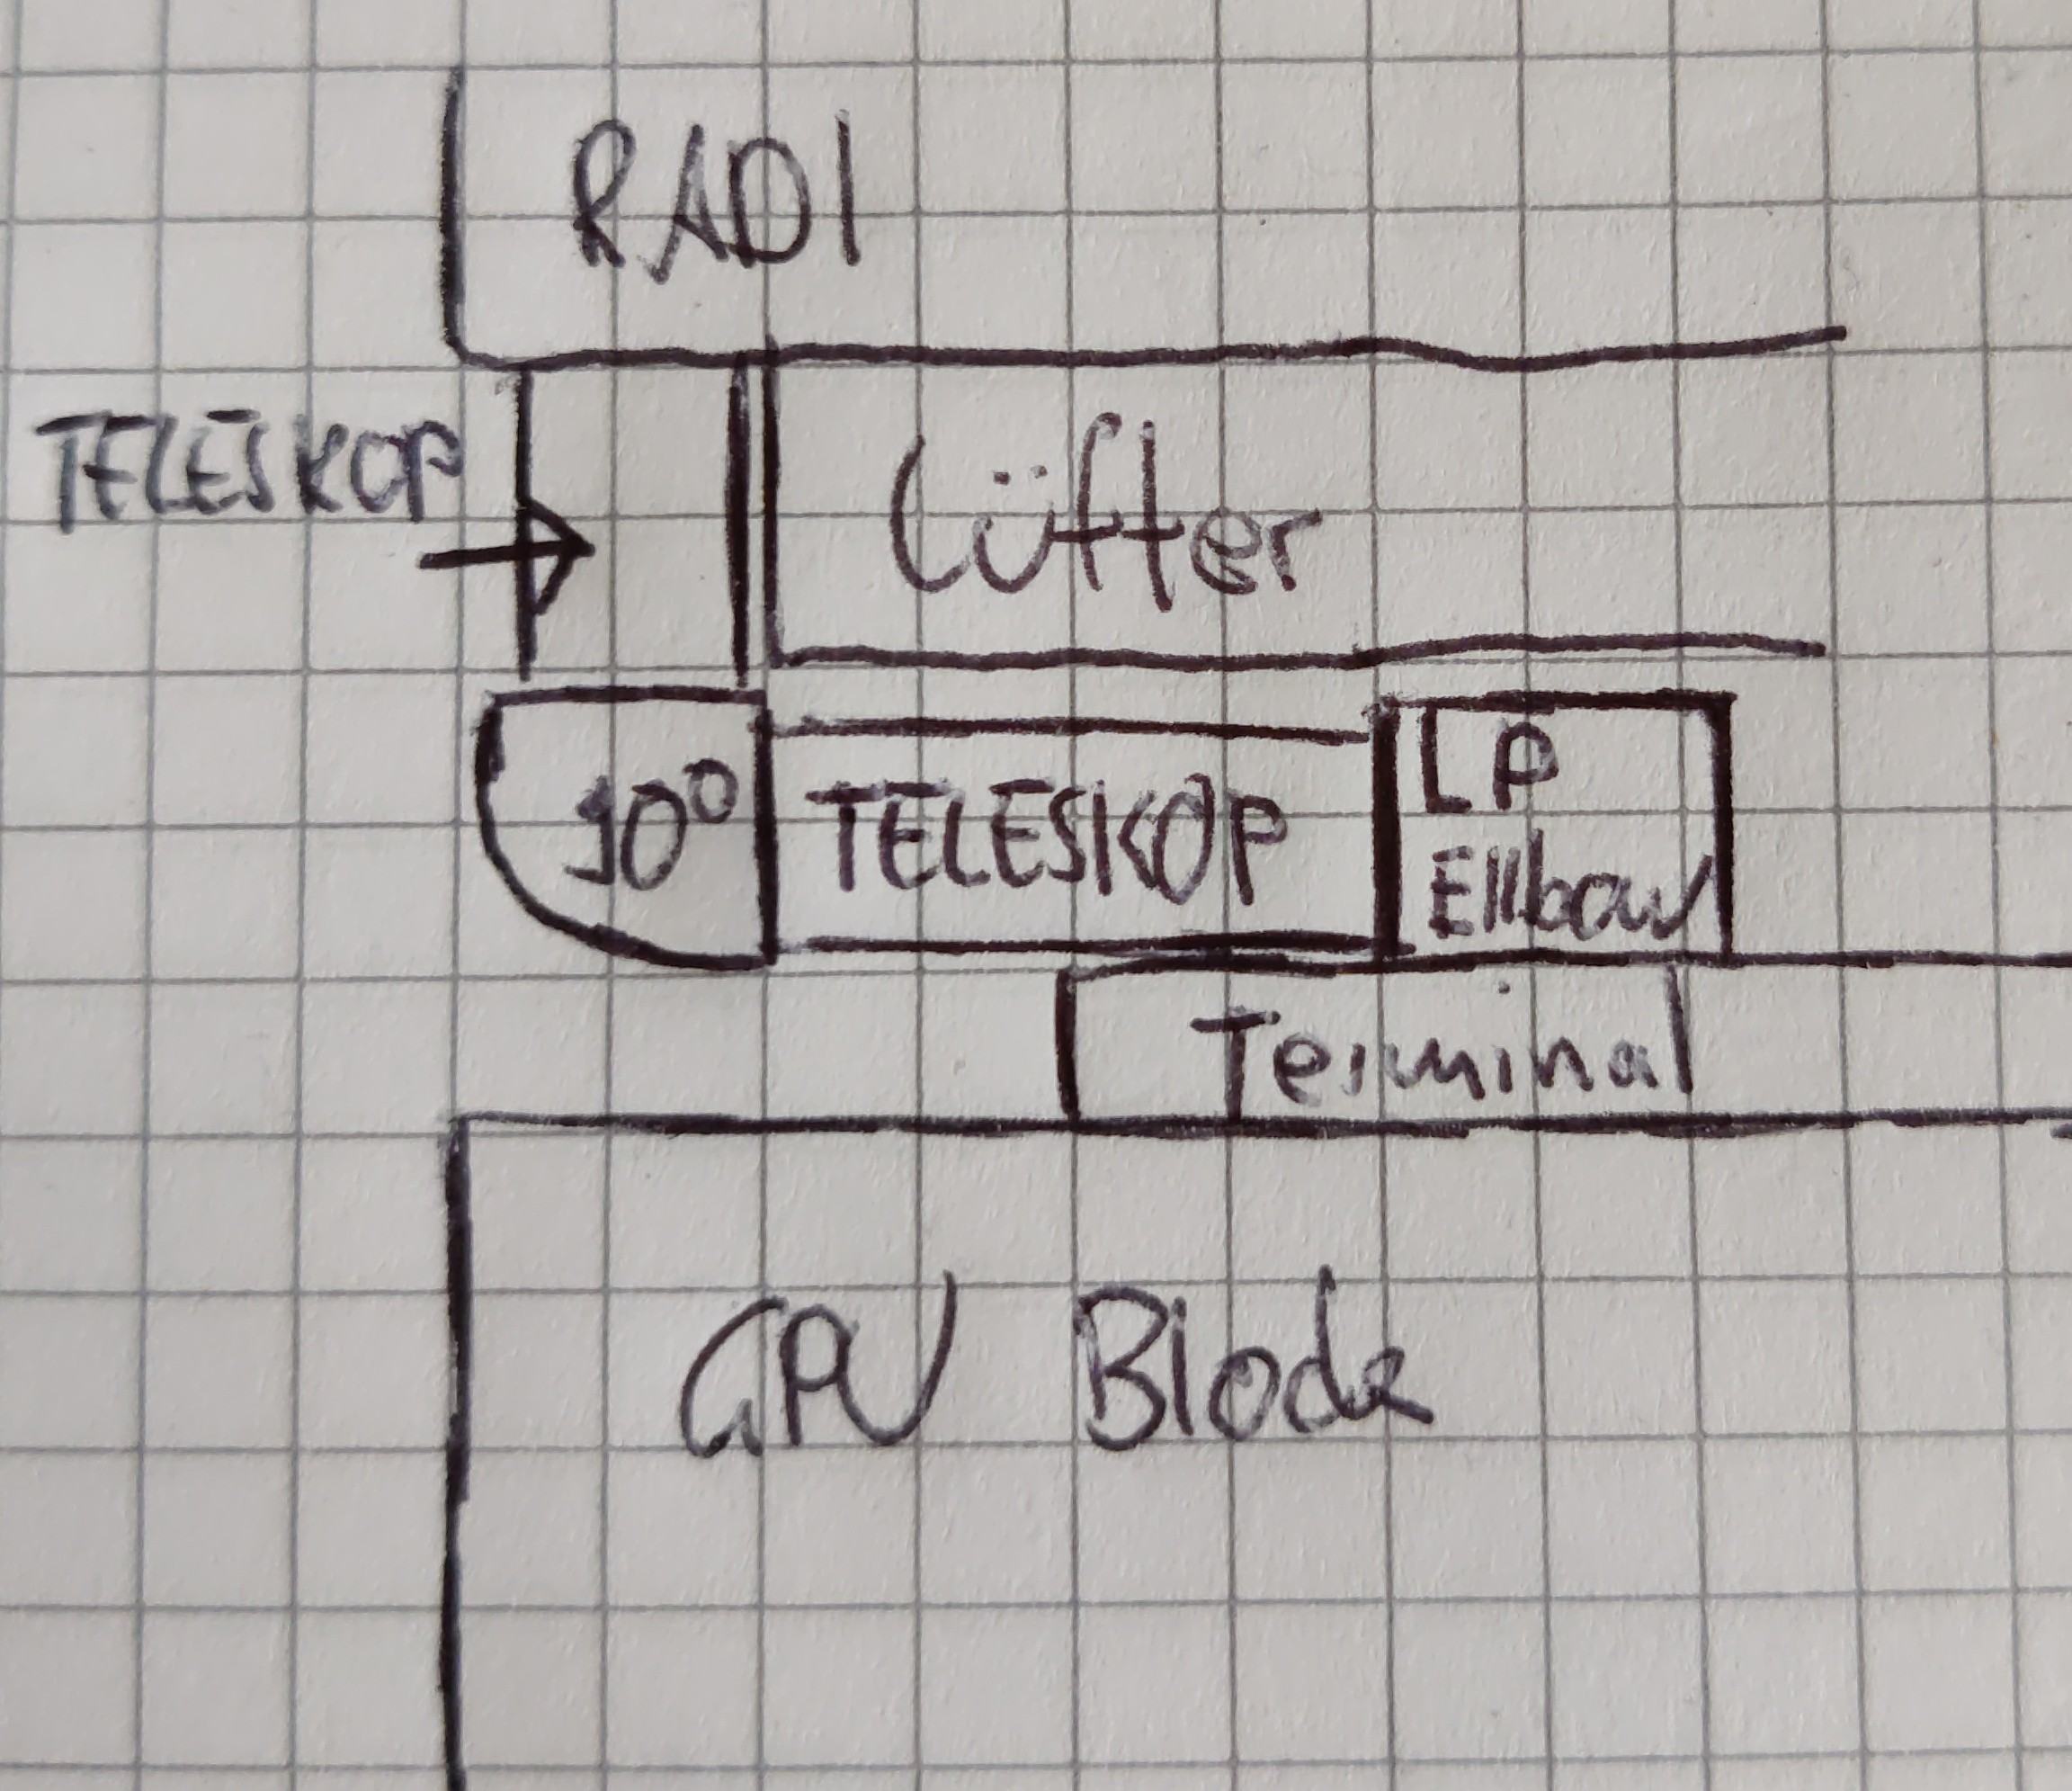 RADI
TELESKOP
Lüfter
90°
TELESKOP
LP
Ellbow
Terminal
GPU Block